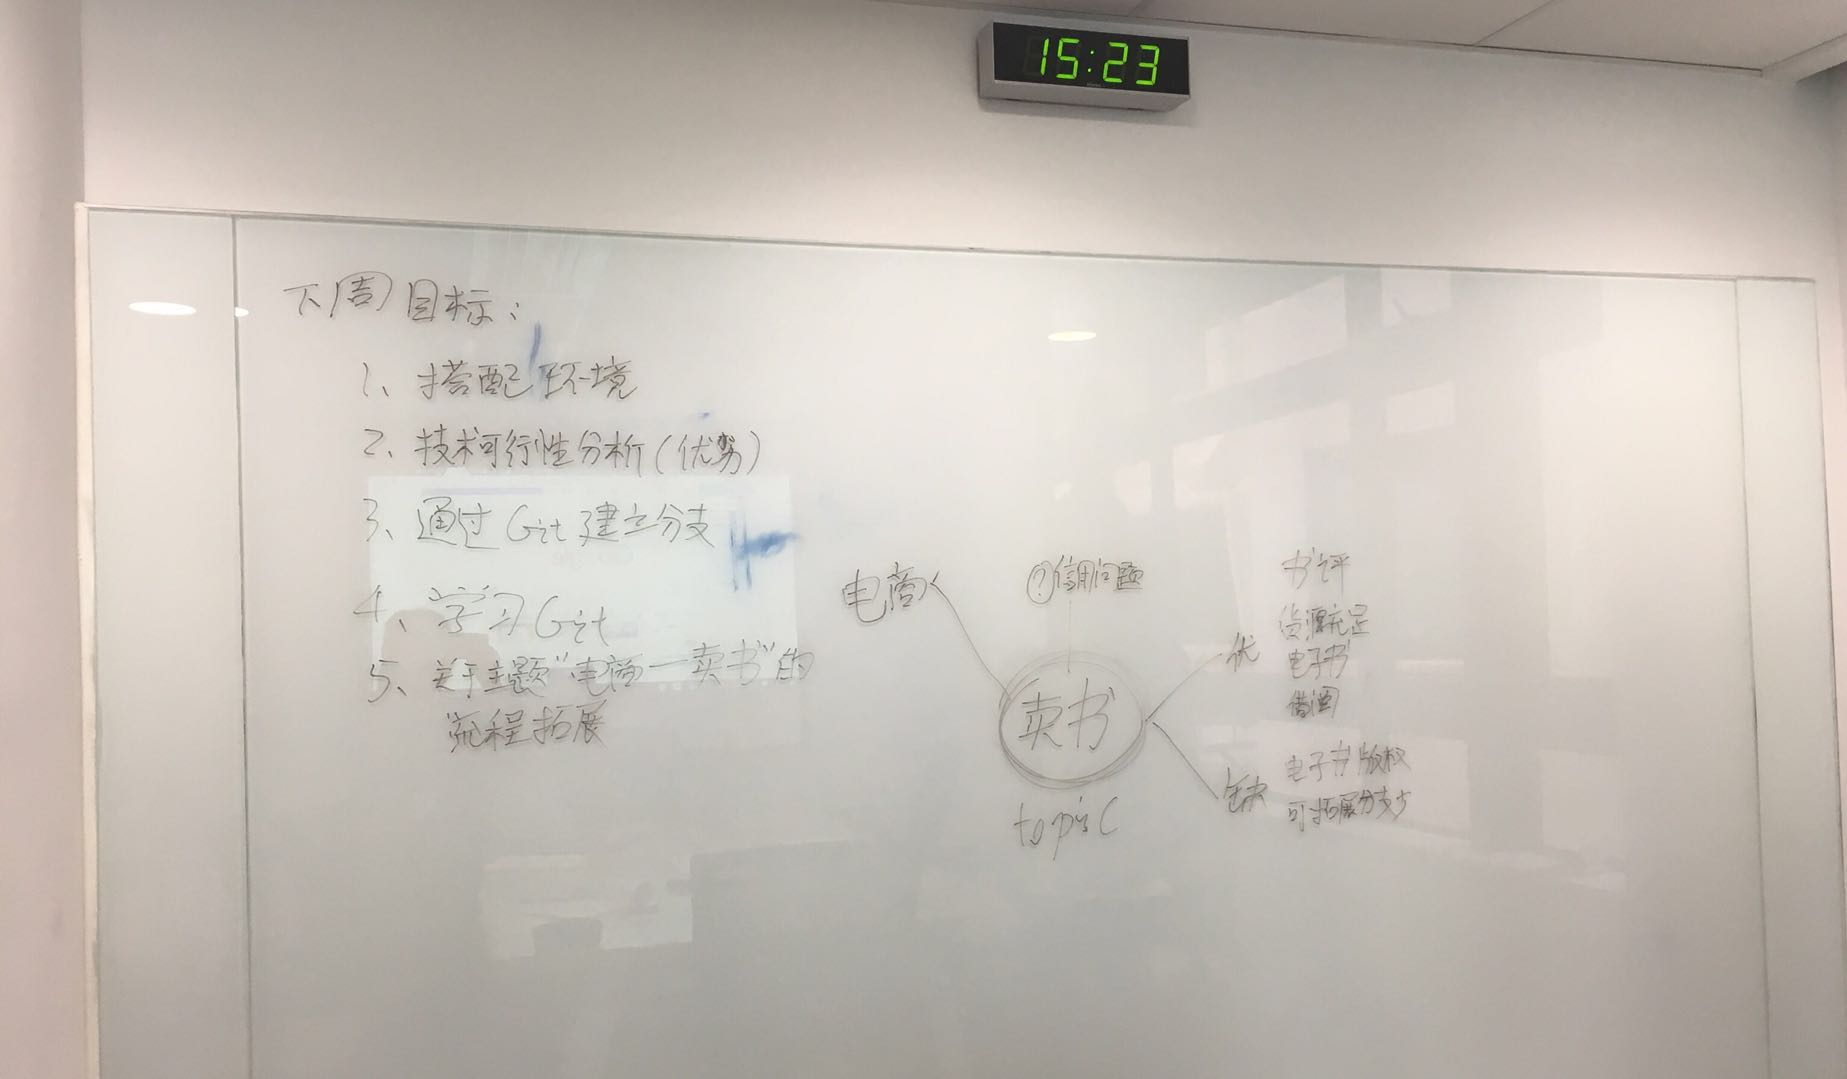 15:23
下周目标：
1、搭配环境
2、技术可行性分析（优势）
3、通过Git建立分支
4、学习Git
5、关于主题“电商—卖书”的
流程拓展
电商
①信用问题
卖书
topic
优
书评
货源充足
电子书
借阅
缺
电子书版权
可拓展分支少